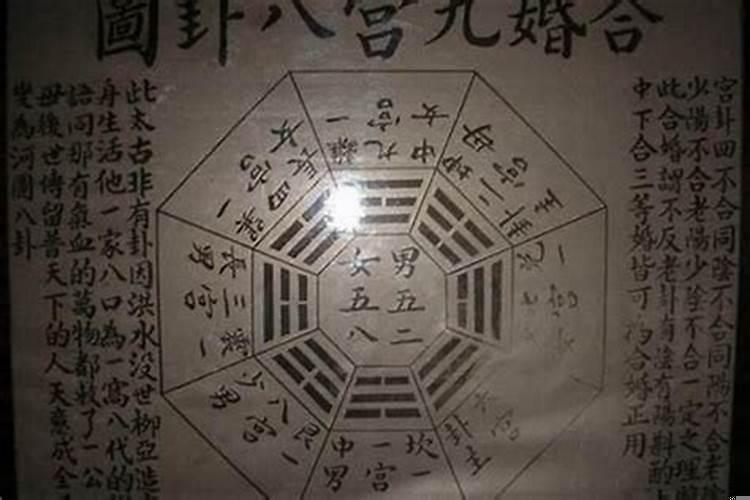 合婚九宮八卦圖
宮卦四不合同陰不合同陽不合老陰
少陽不合老陽少陰不合一定之理
此合婚謂不反老卦有陰有陽斟酌
中下合三等婚皆可為合婚正用
中九離
女宮一
母宮
卦二坤
長四巽
女宮
長三震
男宮一
一兌
宮
男五二
女五八
少八艮
男宮一
中一坎
男宮一
六宮
卦主
此太古非有卦因洪水没世柳亞造
身生活他一家八口為一窩八代的
語同那有氣血的萬物都救了一公
母後世傳留普天下的人天意成全
變為河圖八卦